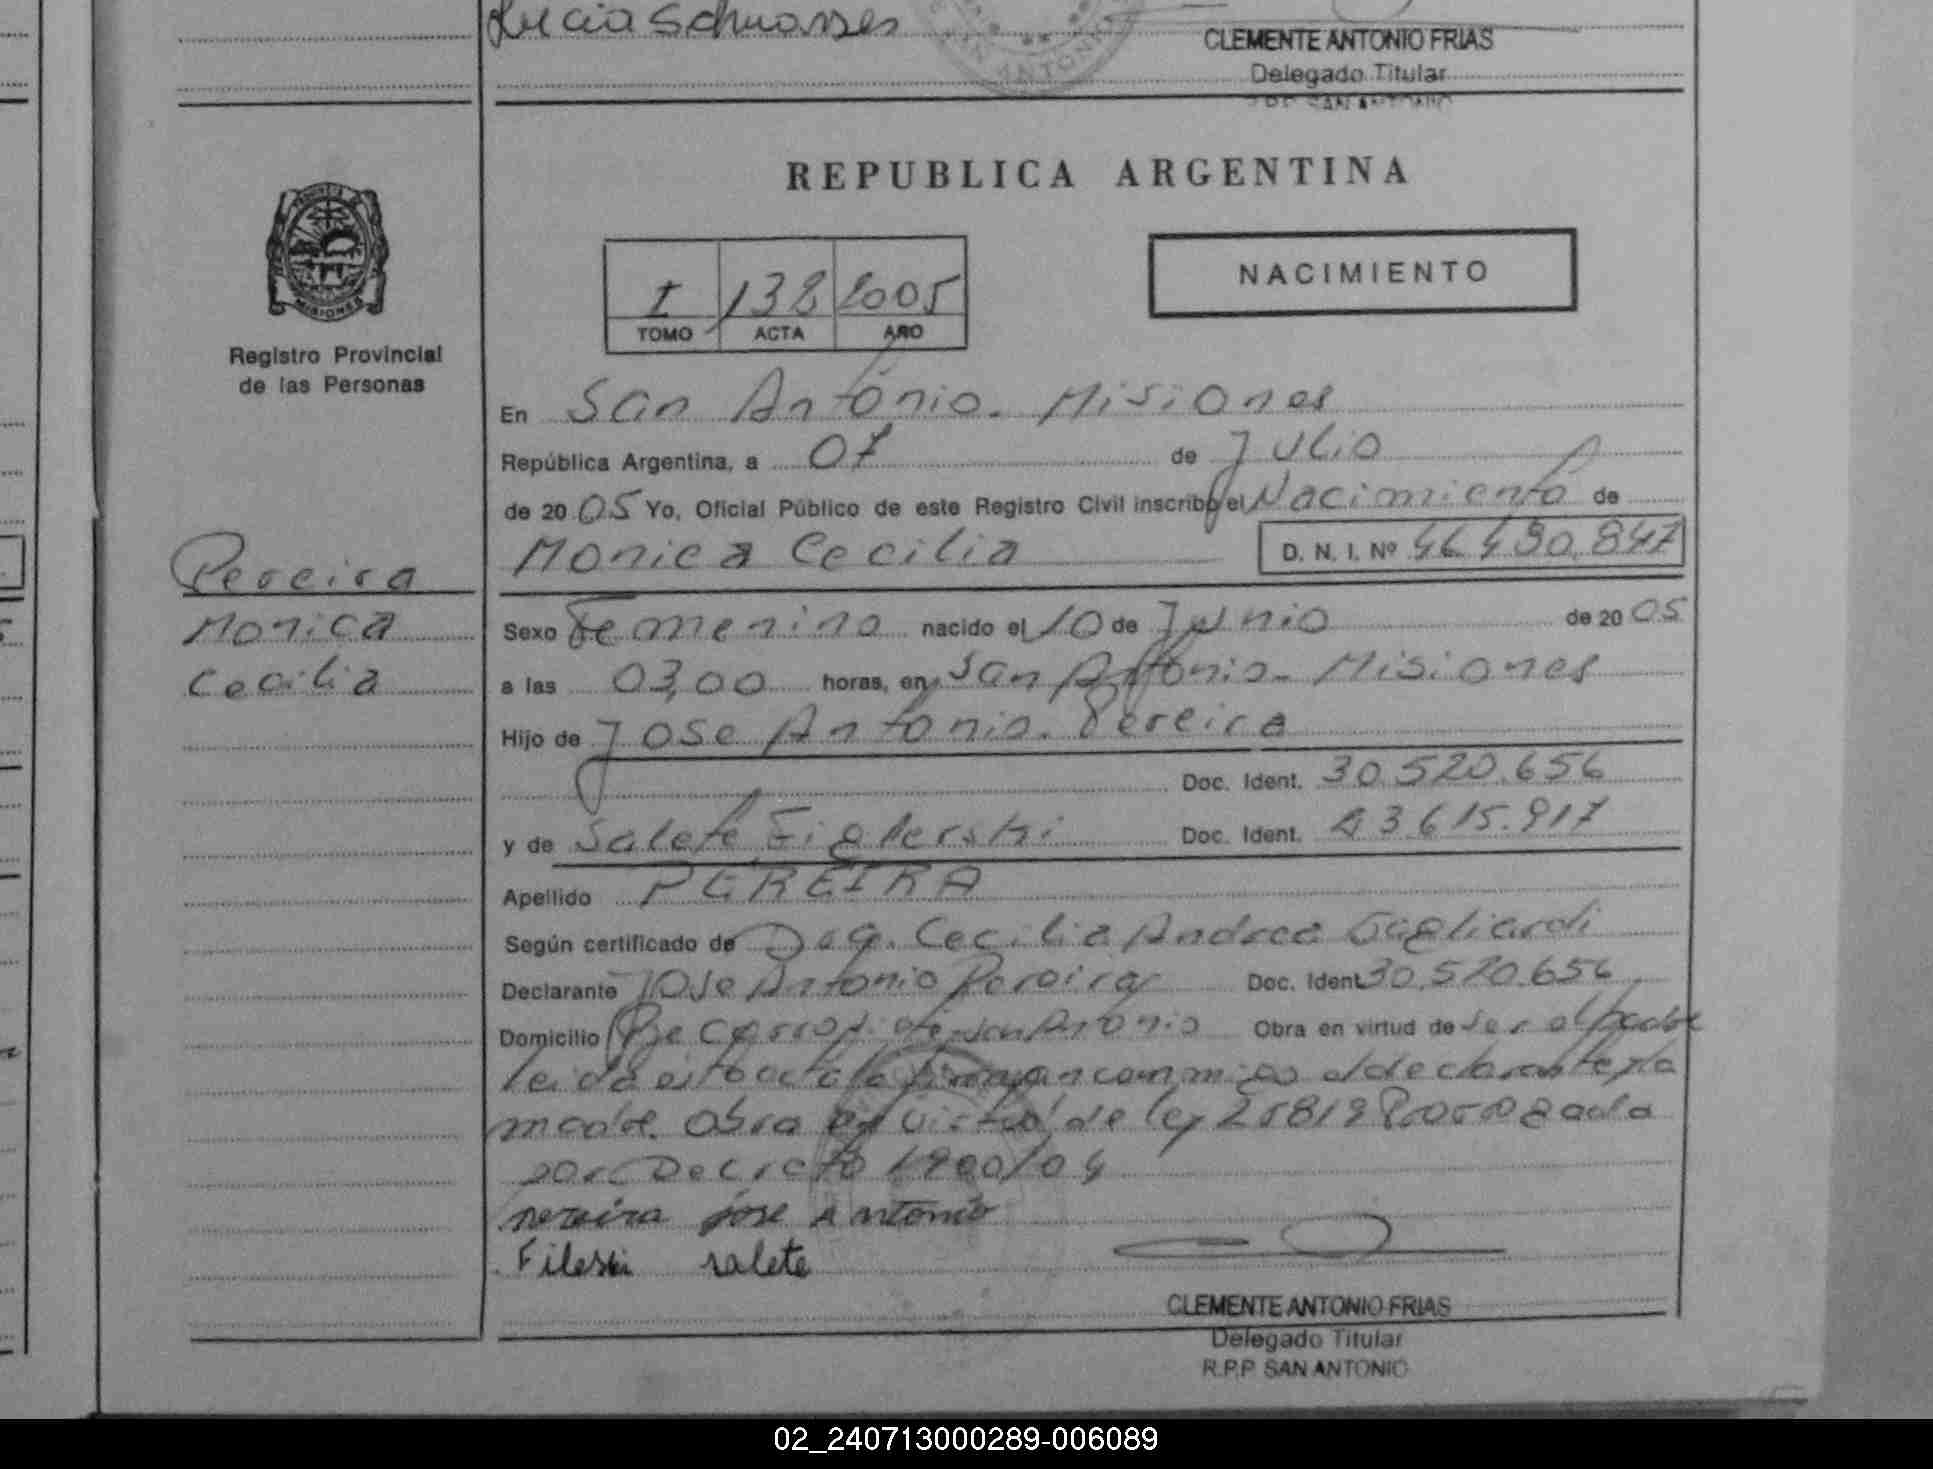 Lucia Schwosses
CLEMENTE ANTONIO FRIAS
Delegado Titular
SAN ANTONIO
REPUBLICA ARGENTINA
I 138 2005
TOMO ACTA AÑO
NACIMIENTO
Registro Provincial
de las Personas
En San Antonio. Misiones
República Argentina, a 07 de Julio
de 2005 Yo, Oficial Público de este Registro Civil inscribo el Nacimiento de
Monica Cecilia D. N. I. Nº 46.490.847
Pereira
Monica
Cecilia
Sexo Femenino nacido el 10 de Junio de 2005
a las 03,00 horas, en San Antonio. Misiones
Hijo de Jose Antonio. Pereira
Doc. Ident. 30.520.656
y de Salete Doc. Ident. 43.615.917
Apellido PEREIRA
Según certificado de Cecilia Andrea Gagliardi
Declarante Jose Antonio Pereira Doc. Ident. 30.520.656
Domicilio San Antonio Obra en virtud de ser el padre
leida esta acta la firman conmigo el declarante y la
madre. Obra en virtud de ley 25819 Prorrogada
por Decreto 1900/04
pereira jose Antonio
Fileski salete
CLEMENTE ANTONIO FRIAS
Delegado Titular
R.P.P. SAN ANTONIO
02_240713000289-006089